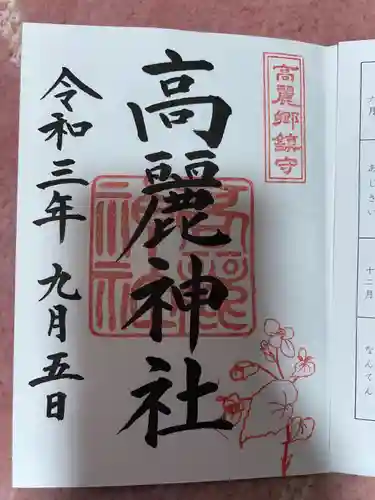 高麗郷鎮守
高麗神社
令和三年 九月五日
六月
あじさい
十二月
なんてん